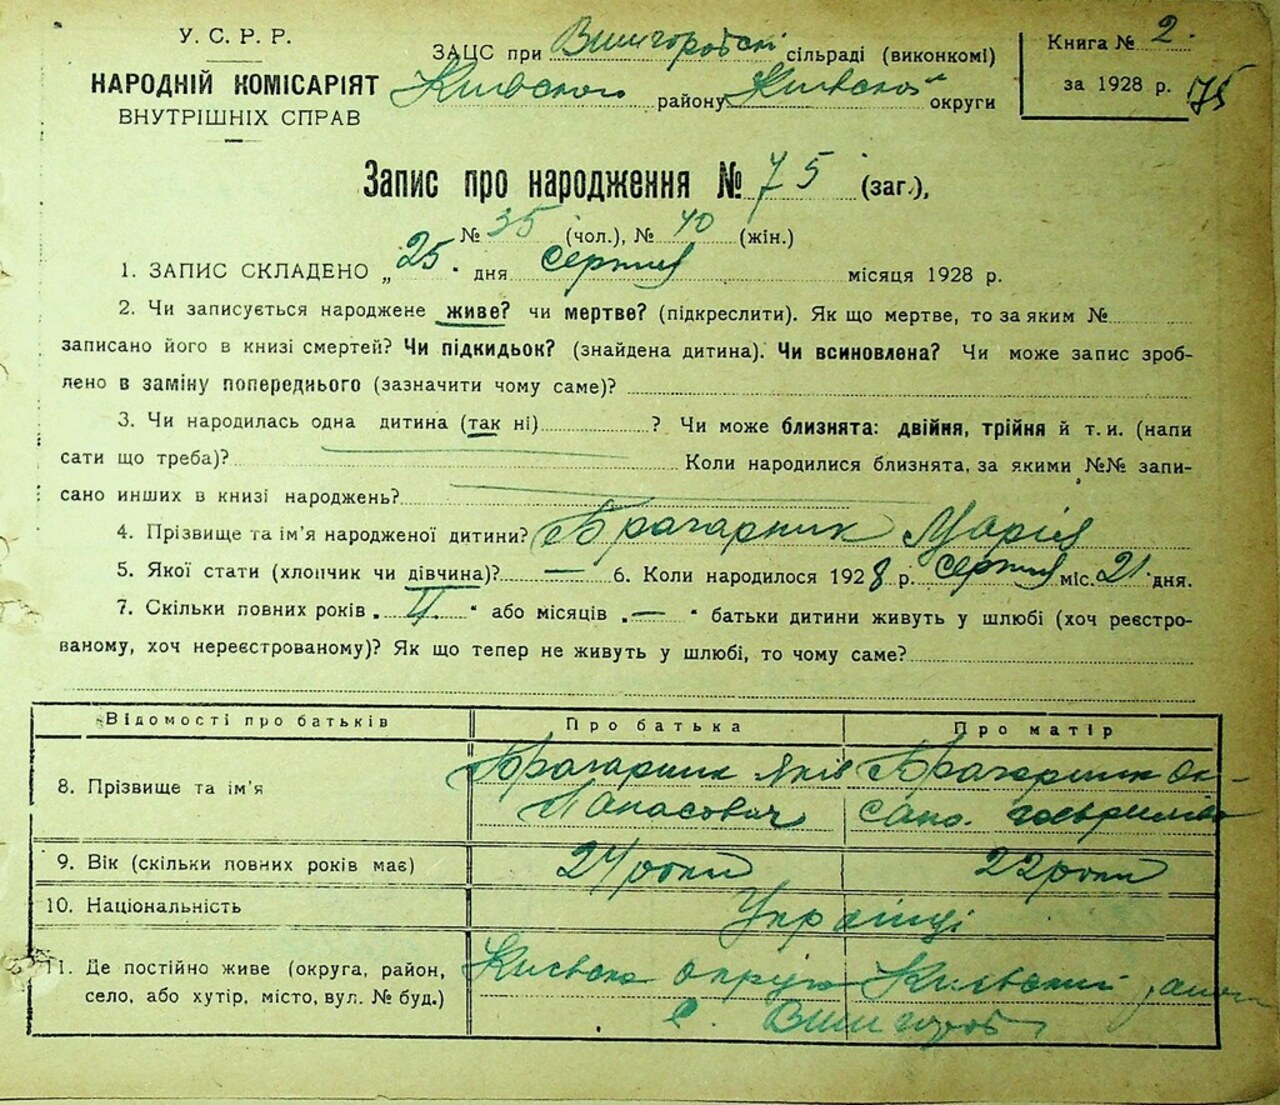 У. С. Р. Р.
НАРОДНІЙ КОМІСАРІЯТ
ВНУТРІШНІХ СПРАВ
ЗАЦС при Вишгородскі сільраді (виконкомі)
Київского району Київской округи
Книга № 2.
за 1928 р. 75
Запис про народження № 75 (заг.),
№ 35 (чол.), № 40 (жін.)
1. ЗАПИС СКЛАДЕНО „25" дня серпня місяця 1928 р.
2. Чи записується народжене живе? чи мертве? (підкреслити). Як що мертве, то за яким №
записано його в книзі смертей? Чи підкидьок? (знайдена дитина). Чи всиновлена? Чи може запис зроб-
лено в заміну попереднього (зазначити чому саме)?
3. Чи народилась одна дитина (так ні) ? Чи може близнята: двійня, трійня й т. и. (напи
сати що треба)? Коли народилися близнята, за якими №№ запи-
сано инших в книзі народжень?
4. Прізвище та ім'я народженої дитини? Брагарник Марія
5. Якої стати (хлопчик чи дівчина)? — 6. Коли народилося 1928 р. серпня міс. 21 дня.
7. Скільки повних років „ " або місяців „ — " батьки дитини живуть у шлюбі (хоч реєстро-
ваному, хоч нереєстрованому)? Як що тепер не живуть у шлюбі, то чому саме?
Відомості про батьків Про батька Про матір
8. Прізвище та ім'я Брагарник Яків Брагарник Ок-
Панасович сана.
9. Вік (скільки повних років має) 24 роки 22 роки
10. Національність Українці
11. Де постійно живе (округа, район, Київска округа Київский район
село, або хутір, місто, вул. № буд.) с. Вишгород